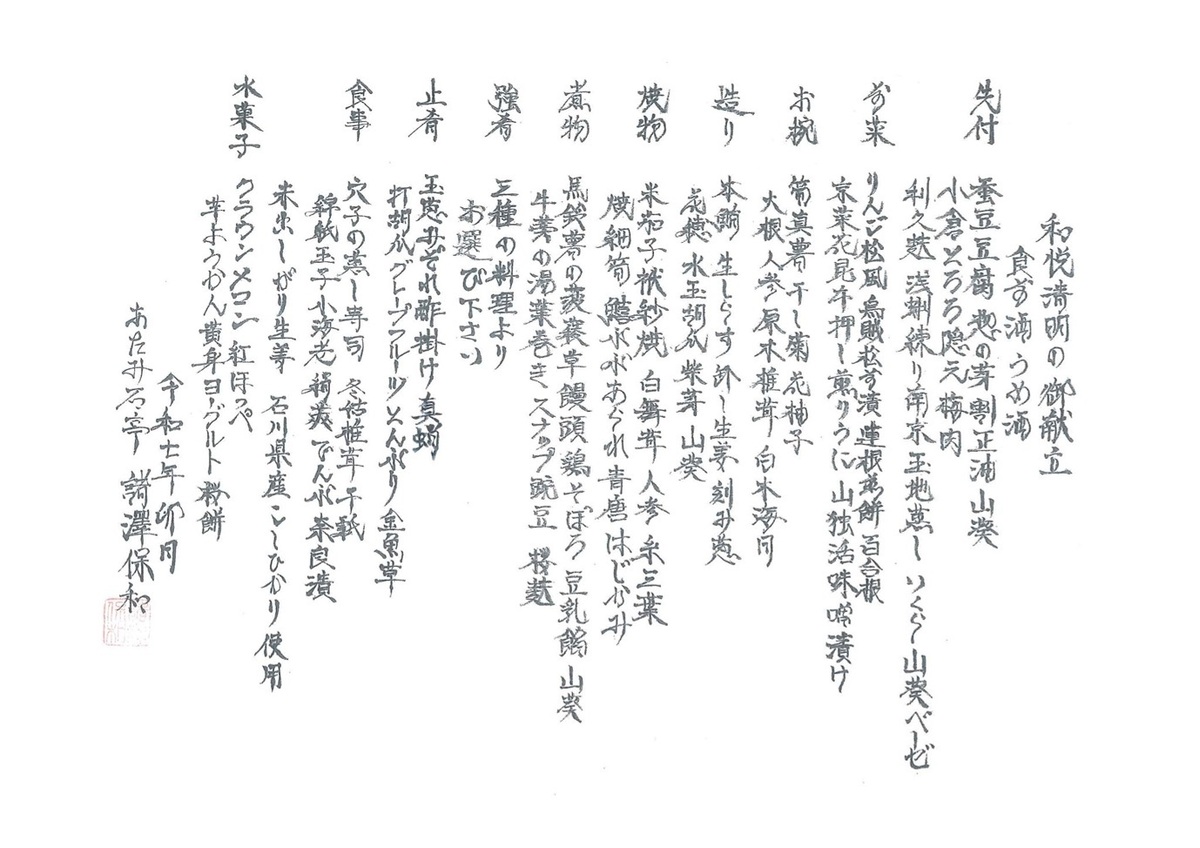 和悦清明の御献立
食前酒 うめ酒
先付 蚕豆豆腐 惣の芽 割正油 山葵
小倉とろろ 隠元 梅肉
利久麩 浅蜊練り 南京玉地蒸し いくら 山葵ベーゼ
前菜 りんご松風 烏賊松前漬 連根煎餅 百合根
京菜花昆布押し 煎りうに 山独活味噌漬け
お椀 筍真薯 干し菊花 柚子
大根 人参 原木椎茸 白木海月
造り 本鮪 生しらす 卸し生姜 刻み葱
花穂 水玉胡瓜 紫芽 山葵
焼物 米茄子袱紗焼 白舞茸 人参 糸三葉
焼細筍 鱧ぶぶあられ 青唐 はじかみ
煮物 馬鈴薯の菠薐草饅頭 鶏そぼろ 豆乳餡 山葵
牛蒡の湯葉巻き スナップ豌豆 桜麩
強肴 三種の料理より
お選び下さい
止肴 玉葱みぞれ酢掛け 真蛸
打胡瓜 グレープフルーツ とんぶり 金魚草
食事 穴子の蒸し寿司 冬姑椎茸 干瓢
錦紙玉子 小海老 絹莢 でんぶ 奈良漬
朱出し がり生姜 石川県産こしひかり使用
水菓子 クラウンメロン 紅ほっぺ
芋ようかん 黄身ヨーグルト 桜餅
令和七年 卯月
あたみ石亭 諸澤保和